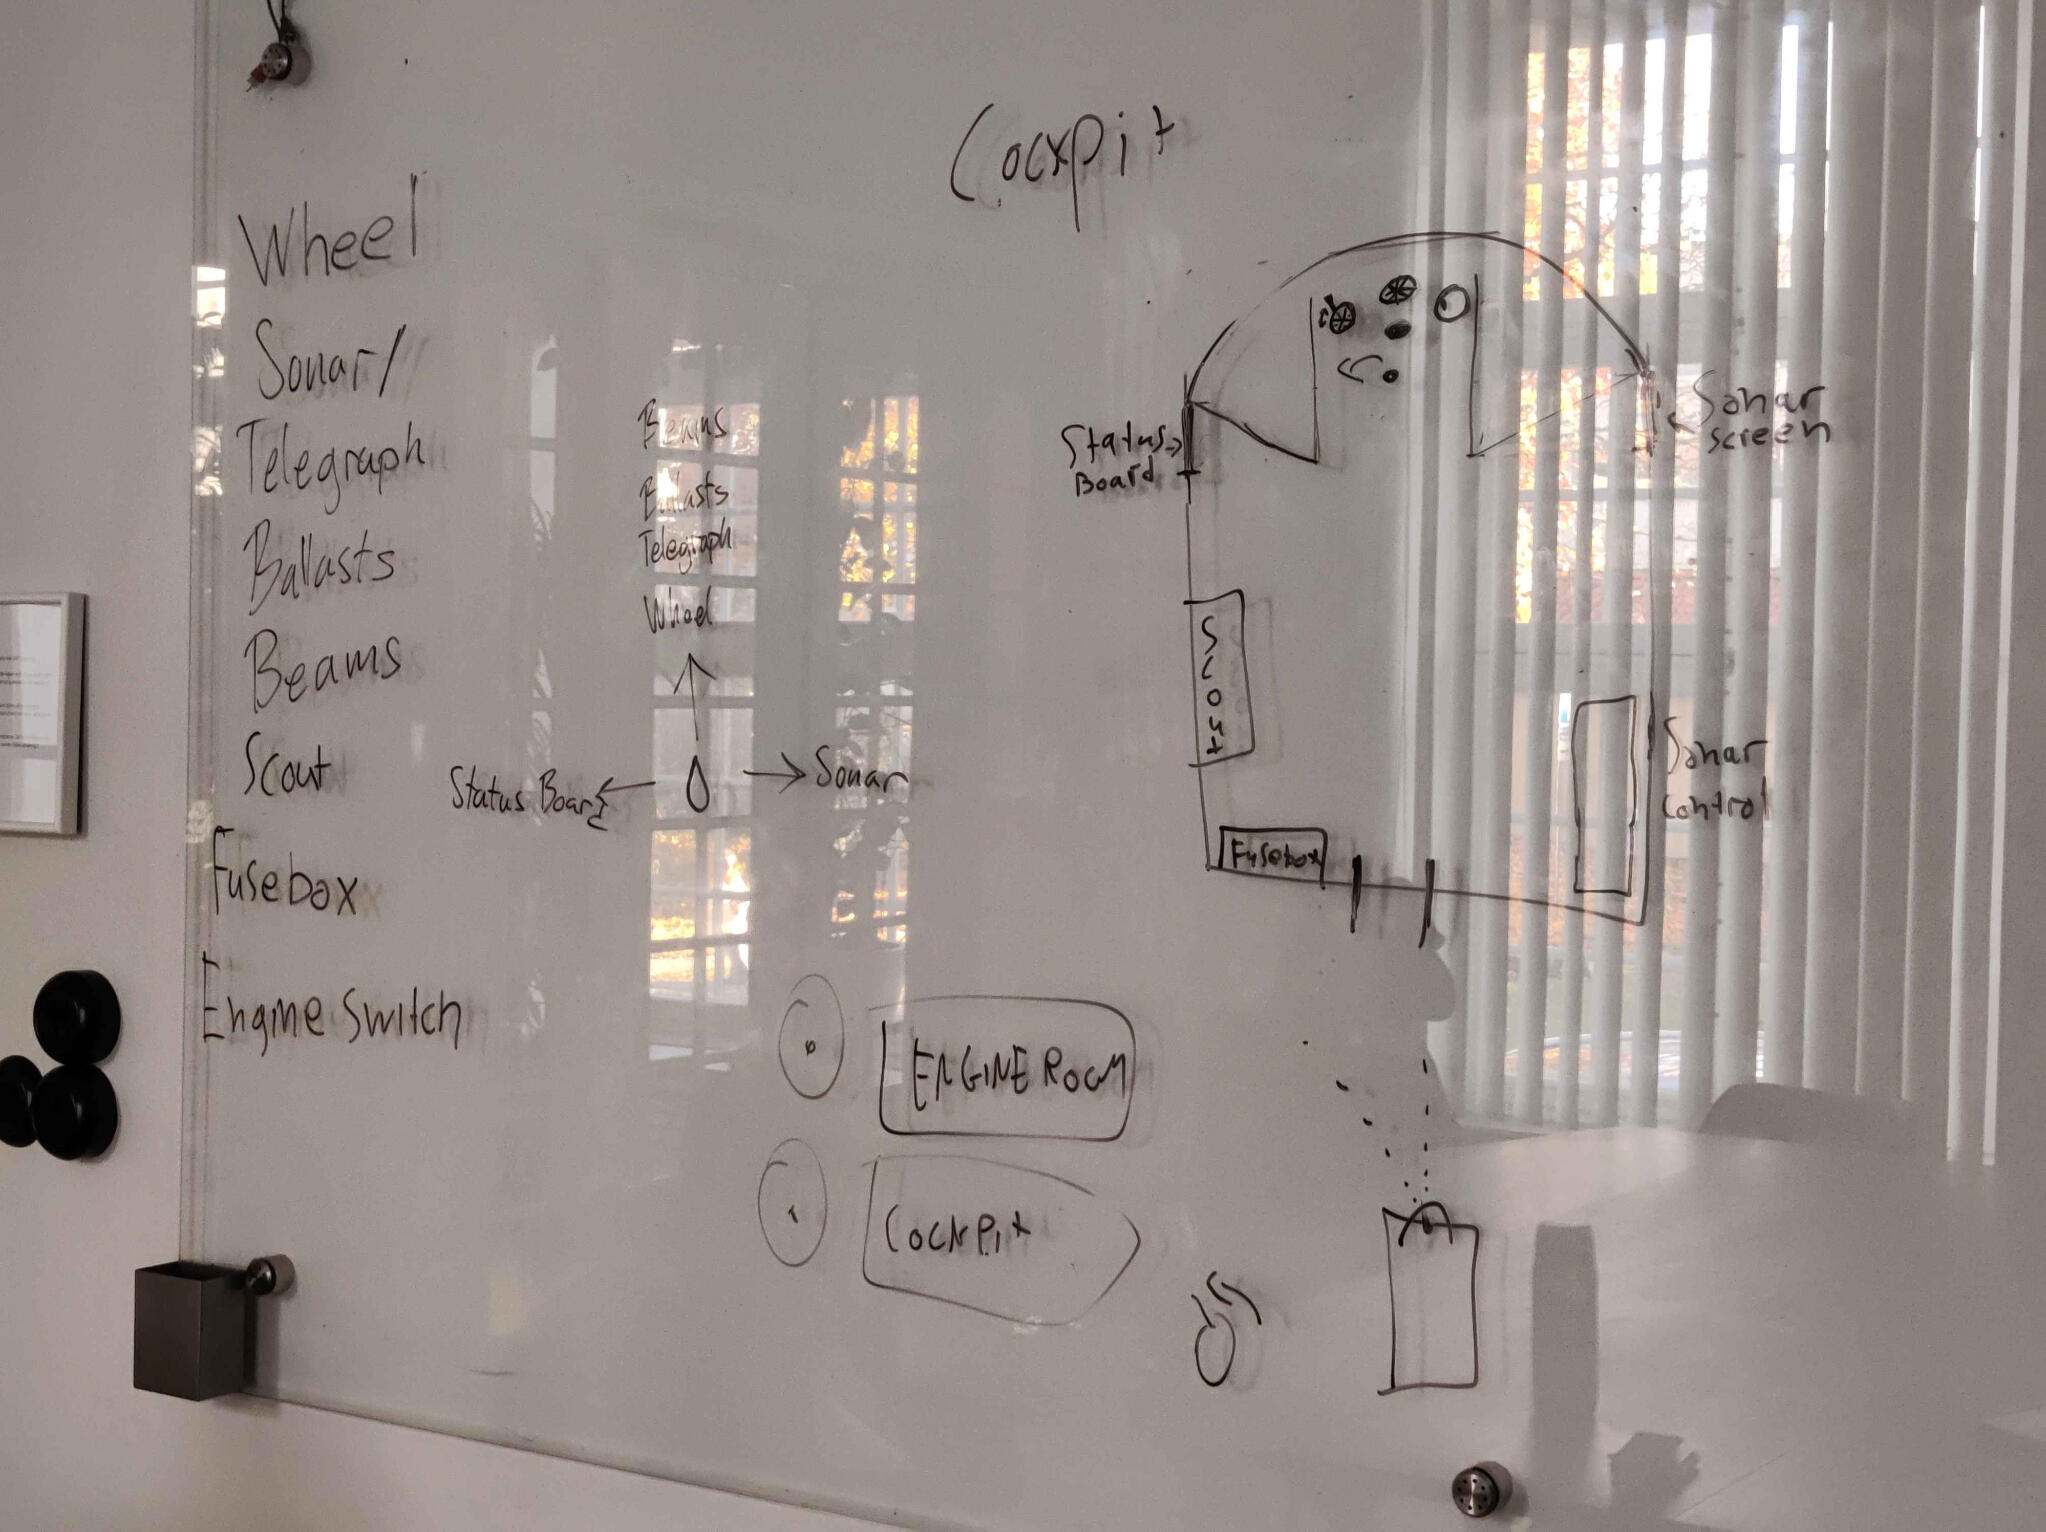 Cockpit
Wheel
Sonar/
Telegraph
Ballasts
Beams
Scout
Fusebox
Engine Switch
Beams
Ballasts
Telegraph
Wheel
Status Board
Sonar
Status
Board
Sonar
screen
Scout
Sonar
control
Fusebox
ENGINE ROOM
COCKPit